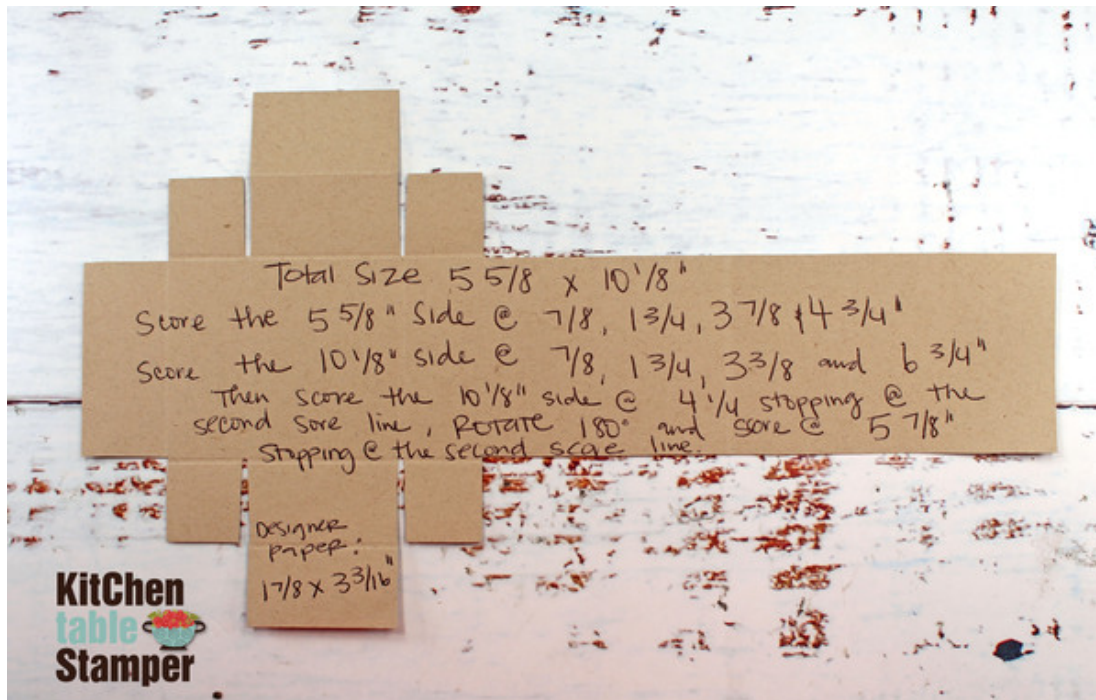 Total Size 5 5/8 x 10 1/8"
Score the 5 5/8" Side @ 7/8, 1 3/4, 3 7/8 & 4 3/4"
Score the 10 1/8" side @ 7/8, 1 3/4, 3 3/8 and 6 3/4"
Then score the 10 1/8" side @ 4 1/4 stopping @ the
second sore line, ROTATE 180° and score @ 5 7/8"
Stopping @ the second score line.
Designer
paper:
1 7/8 x 3 3/16"
KitChen
table
Stamper